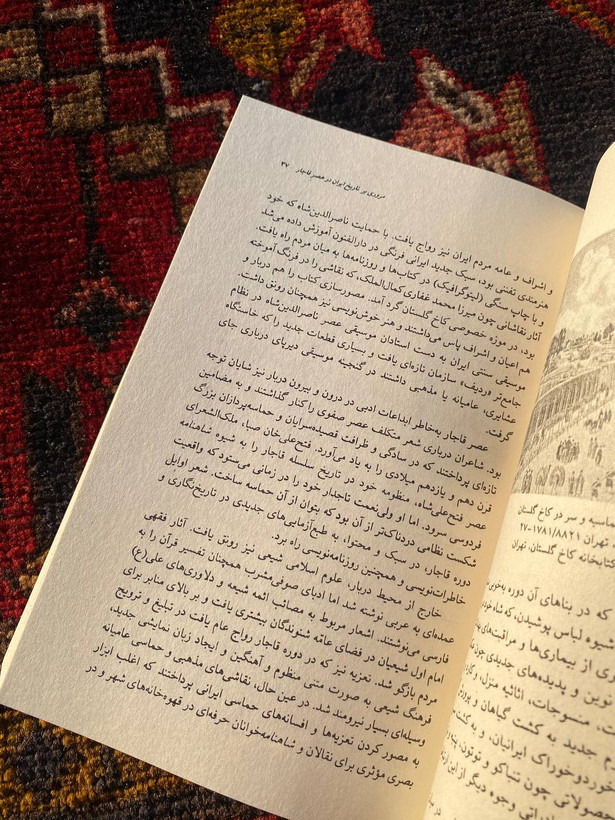 مروری بر تاریخ ایران در عصر قاجار ۳۷
و اشراف و عامه مردم ایران نیز رواج یافت. با حمایت ناصرالدین‌شاه که خود
هنرمندی تفننی بود، سبک جدید ایرانی فرنگی در دارالفنون آموزش داده می‌شد
و با چاپ سنگی (لیتوگرافیک) در کتاب‌ها و روزنامه‌ها به میان مردم راه یافت.
آثار نقاشانی چون میرزا محمد غفاری کمال‌الملک، که نقاشی را در فرنگ آموخته
بود، در موزه خصوصی کاخ گلستان گرد آمد. مصورسازی کتاب را هم دربار و
هم اعیان و اشراف پاس می‌داشتند و هنر خوش‌نویسی نیز همچنان رونق داشت.
موسیقی سنتی ایران به دست استادان موسیقی عصر ناصرالدین‌شاه در نظام
جامع‌تر «ردیف» سازمان تازه‌ای یافت و بسیاری قطعات جدید را که خاستگاه
عشایری، عامیانه یا مذهبی داشتند در گنجینه موسیقی دیرپای درباری جای
گرفت.
عصر قاجار به‌خاطر ابداعات ادبی در درون و بیرون دربار نیز شایان توجه
بود. شاعران درباری شعر متکلف عصر صفوی را کنار گذاشتند و به مضامین
تازه‌ای پرداختند که در سادگی و ظرافت قصیده‌سرایان و حماسه‌پردازان بزرگ
قرن دهم و یازدهم میلادی را به یاد می‌آورد. فتح‌علی‌خان صبا، ملک‌الشعرای
عصر فتحعلی‌شاه، منظومه خود در تاریخ سلسله قاجار را به شیوه شاهنامه
فردوسی سرود. اما او ولی‌نعمت تاجدار خود را در زمانی می‌ستود که واقعیت
شکست نظامی دردناک‌تر از آن بود که بتوان از آن حماسه ساخت. شعر اوایل
دوره قاجار، در سبک و محتوا، به طبع‌آزمایی‌های جدیدی در تاریخ‌نگاری و
خاطرات‌نویسی و همچنین روزنامه‌نویسی راه برد.
خارج از محیط دربار، علوم اسلامی شیعی نیز رونق یافت. آثار فقهی
عمده‌ای به عربی نوشته شد اما ادبای صوفی‌مشرب همچنان تفسیر قرآن را به
فارسی می‌نوشتند. اشعار مربوط به مصائب ائمه شیعه و دلاوری‌های علی(ع)
امام اول شیعیان در فضای عامه شنوندگان بیشتری یافت و بر بالای منابر برای
مردم بازگو شد. تعزیه نیز که در دوره قاجار رواج عام یافت در تبلیغ و ترویج
فرهنگ شیعی به صورت متنی منظوم و آهنگین و ایجاد زبان نمایشی جدید،
وسیله‌ای بسیار نیرومند شد. در عین حال، نقاشی‌های مذهبی و حماسی عامیانه
به مصور کردن تعزیه‌ها و افسانه‌های حماسی ایرانی پرداختند که اغلب ابزار
بصری مؤثری برای نقالان و شاهنامه‌خوانان حرفه‌ای در قهوه‌خانه‌های شهر و در
سر در کاخ گلستان
تهران ۲۷-۱۷۸۱/۸۸۲۱
کتابخانه کاخ گلستان، تهران
که در بناهای آن دوره به‌خوبی
شیوه لباس پوشیدن، که شاه خود
از بیماری‌ها و مراقبت‌های
نوین و پدیده‌های جدیدی چون
منسوجات، اثاثیه منزل، و
جدید به کشت گیاهان و پرورش
خوردوخوراک ایرانیان، و
محصولاتی چون تنباکو و توتون،
وجوه دیگر از این